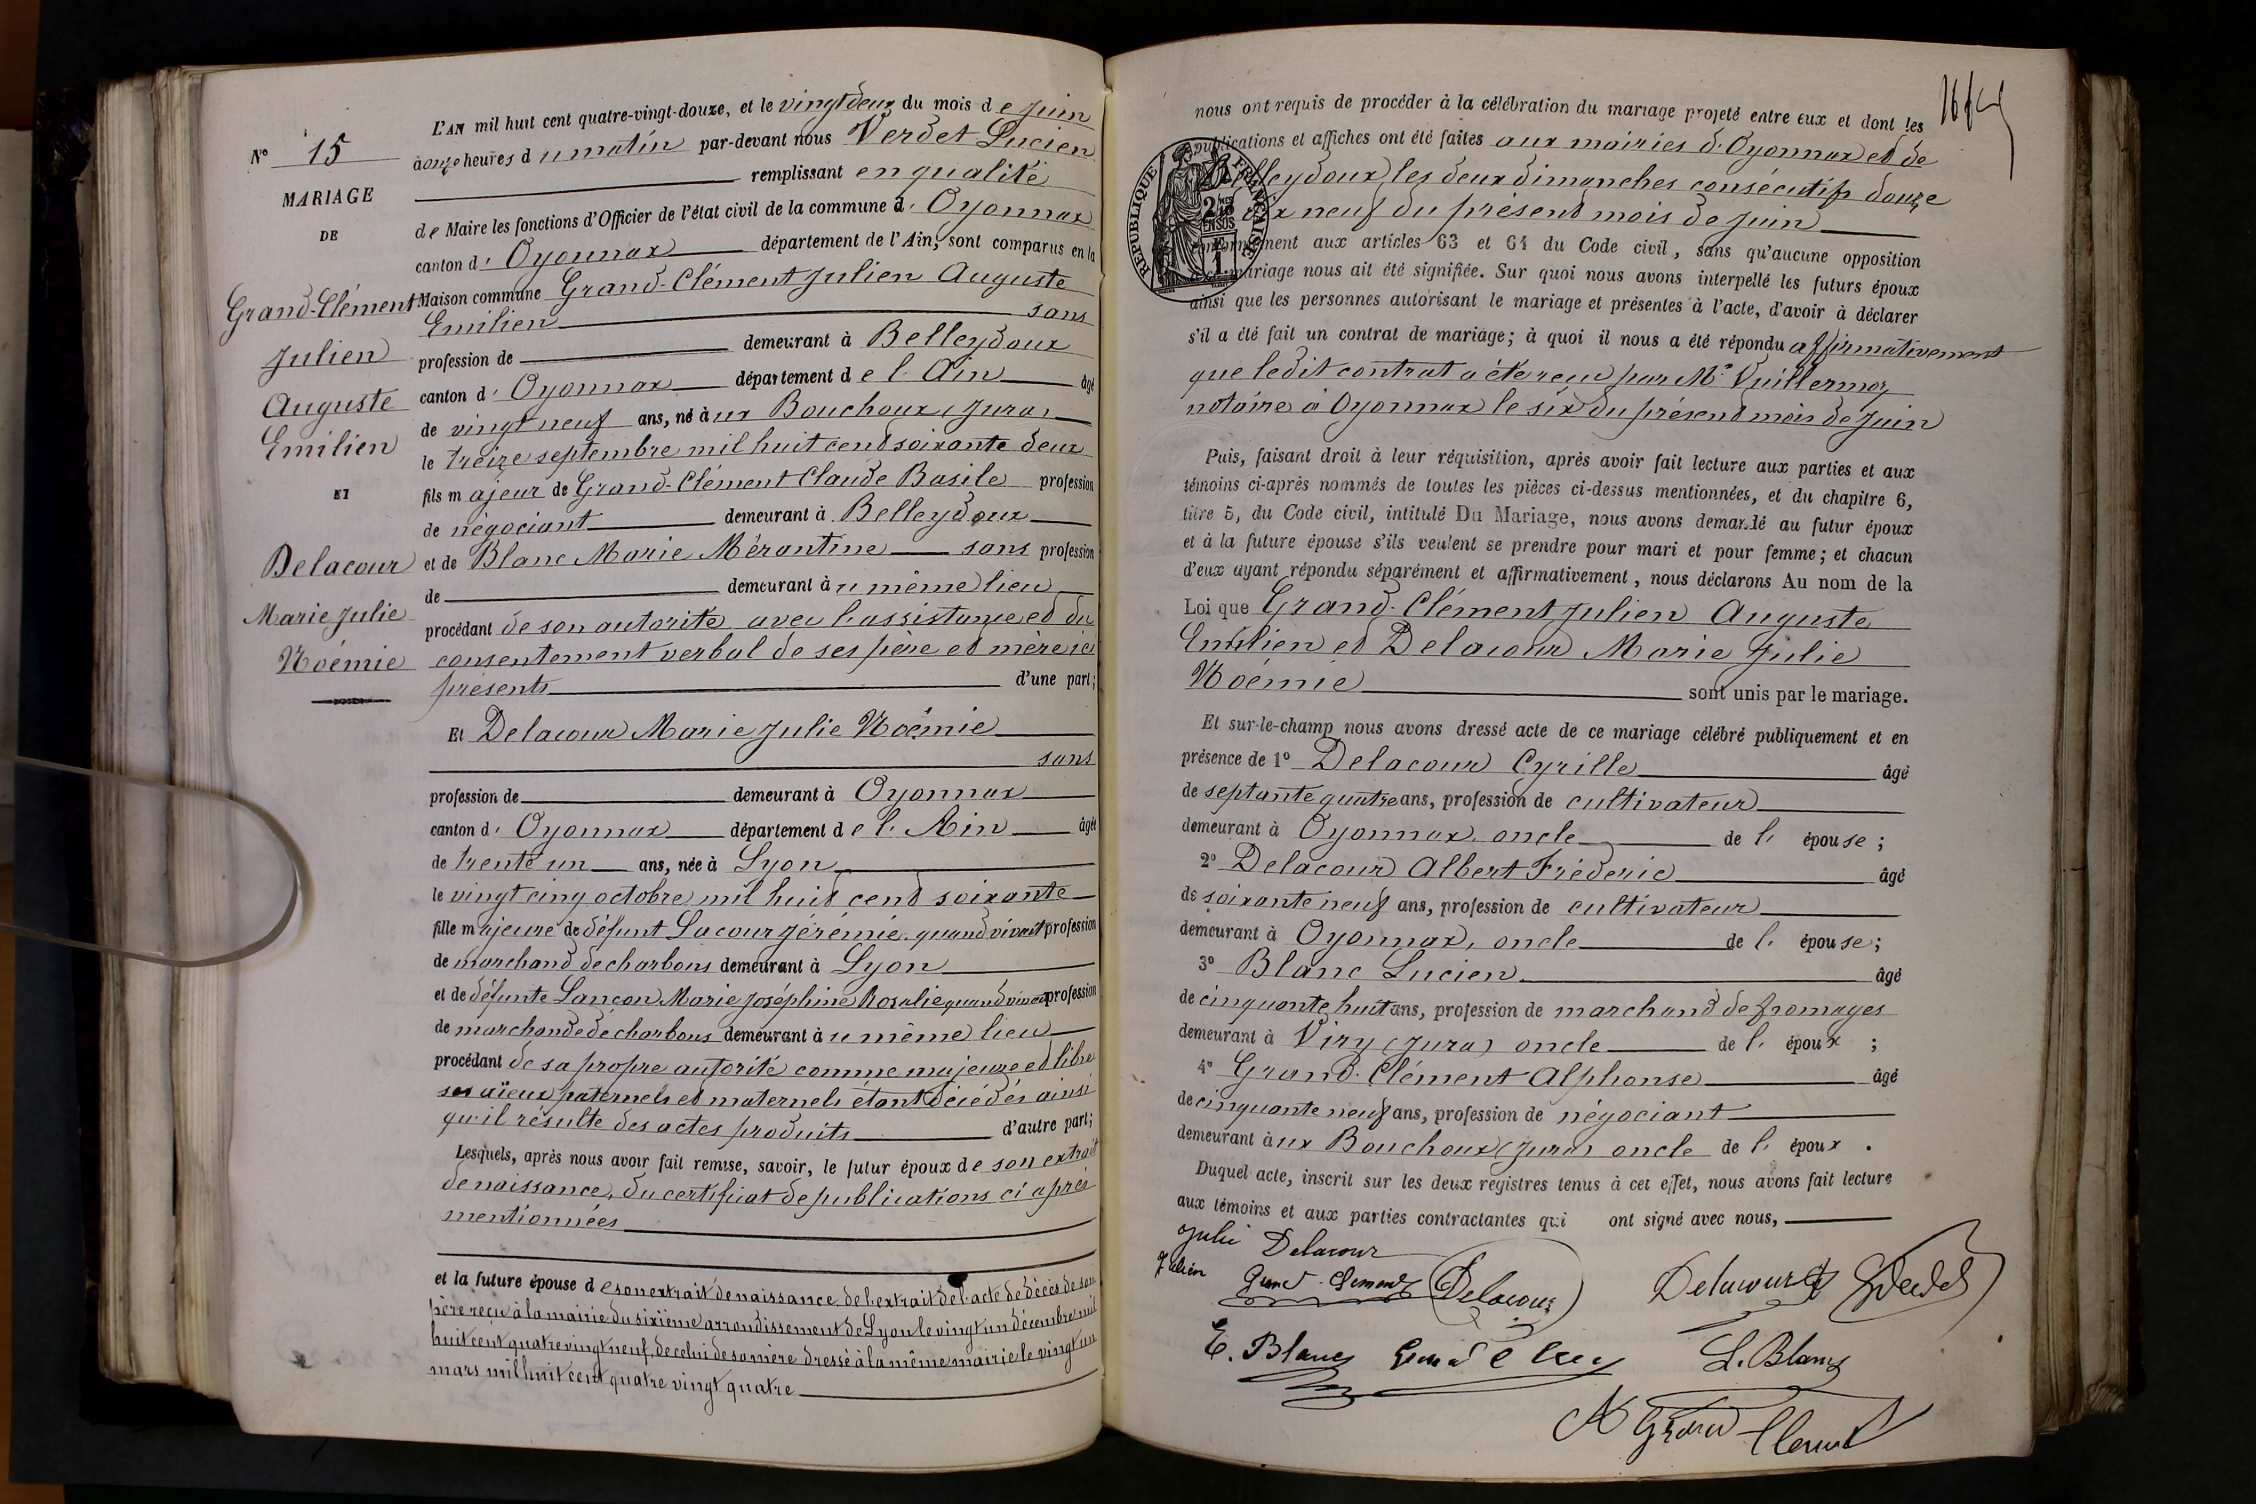 N° 15
MARIAGE
DE
Grand-Clément
Julien
Auguste
Emilien
ET
Delacour
Marie Julie
Noémie
L'AN mil huit cent quatre-vingt-douze, et le vingt deux du mois de juin
à onze heures du matin par-devant nous Verdet Lucien
remplissant en qualité
de Maire les fonctions d'Officier de l'état civil de la commune d' Oyonnax
canton d' Oyonnax département de l'Ain, sont comparus en la
Maison commune Grand-Clément Julien Auguste
Emilien sans
profession de demeurant à Belleydoux
canton d' Oyonnax département de l'Ain âgé
de vingt neuf ans, né aux Bouchoux (Jura)
le treize septembre mil huit cent soixante deux
fils majeur de Grand-Clément Claude Basile profession
de négociant demeurant à Belleydoux
et de Blanc Marie Mérantine sans profession
de demeurant au même lieu
procédant de son autorité avec l'assistance et du
consentement verbal de ses père et mère ici
présents d'une part;
Et Delacour Marie Julie Noémie
sans
profession de demeurant à Oyonnax
canton d' Oyonnax département de l'Ain âgée
de trente un ans, née à Lyon
le vingt cinq octobre mil huit cent soixante
fille majeure de défunt Lacour Jérémie quand vivait profession
de marchand de charbons demeurant à Lyon
et de défunte Lançon Marie Joséphine Rosalie, quand vivait profession
de marchande de charbons demeurant au même lieu
procédant de sa propre autorité comme majeure et libre
ses aïeux paternels et maternels étant décédés ainsi
qu'il résulte des actes produits d'autre part;
Lesquels, après nous avoir fait remise, savoir, le futur époux de son extrait
de naissance, du certificat de publications ci après
mentionnées
et la future épouse de son extrait de naissance de l'extrait de l'acte de décès de son
père reçu à la mairie du sixième arrondissement de Lyon le vingt un décembre mil
huit cent quatre vingt neuf, de celui de sa mère dressé à la même mairie le vingt un
mars mil huit cent quatre vingt quatre
nous ont requis de procéder à la célébration du mariage projeté entre eux et dont les
publications et affiches ont été faites aux mairies d'Oyonnax et de
Belleydoux les deux dimanches consécutifs douze
dix neuf du présent mois de juin
RÉPUBLIQUE FRANÇAISE
conformément aux articles 63 et 64 du Code civil, sans qu'aucune opposition
mariage nous ait été signifiée. Sur quoi nous avons interpellé les futurs époux
ainsi que les personnes autorisant le mariage et présentes à l'acte, d'avoir à déclarer
s'il a été fait un contrat de mariage; à quoi il nous a été répondu affirmativement
que ledit contrat a été reçu par Me Vuillermoz
notaire à Oyonnax le six du présent mois de juin
Puis, faisant droit à leur réquisition, après avoir fait lecture aux parties et aux
témoins ci-après nommés de toutes les pièces ci-dessus mentionnées, et du chapitre 6,
titre 5, du Code civil, intitulé Du Mariage, nous avons demandé au futur époux
et à la future épouse s'ils veulent se prendre pour mari et pour femme; et chacun
d'eux ayant répondu séparément et affirmativement, nous déclarons Au nom de la
Loi que Grand-Clément Julien Auguste
Emilien et Delacour Marie Julie
Noémie sont unis par le mariage.
Et sur-le-champ nous avons dressé acte de ce mariage célébré publiquement et en
présence de 1° Delacour Cyrille âgé
de septante quatre ans, profession de cultivateur
demeurant à Oyonnax, oncle de l' épouse;
2° Delacour Albert Fréderic âgé
de soixante neuf ans, profession de cultivateur
demeurant à Oyonnax, oncle de l' épouse;
3° Blanc Lucien âgé
de cinquante huit ans, profession de marchand de fromages
demeurant à Viry (Jura) oncle de l' époux;
4° Grand-Clément Alphonse âgé
de cinquante neuf ans, profession de négociant
demeurant aux Bouchoux (Jura) oncle de l' époux.
Duquel acte, inscrit sur les deux registres tenus à cet effet, nous avons fait lecture
aux témoins et aux parties contractantes qui ont signé avec nous,
Julie Delacour
Julien Grand-Clement Delacour Delacour Verdet
E. Blanc Grand L. Blanc
Grand Clement